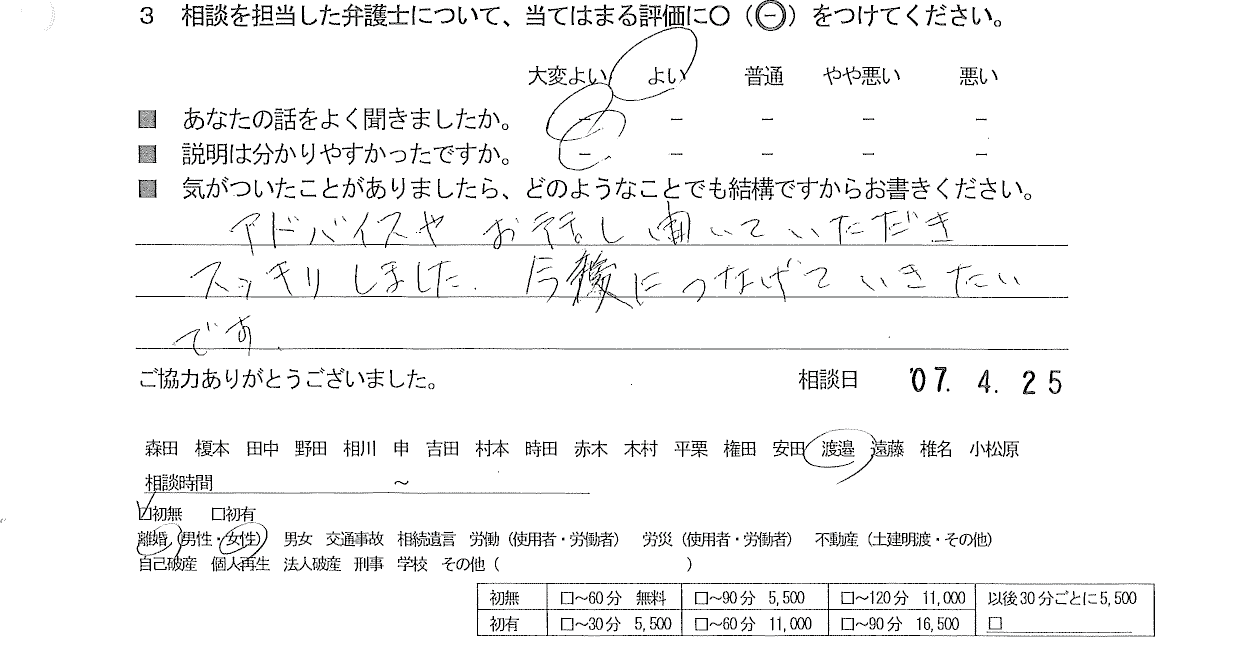 3 相談を担当した弁護士について、当てはまる評価に○（㊀）をつけてください。
大変よい よい 普通 やや悪い 悪い
■ あなたの話をよく聞きましたか。 － － － － －
■ 説明は分かりやすかったですか。 － － － － －
■ 気がついたことがありましたら、どのようなことでも結構ですからお書きください。
アドバイスや お話し聞いていただき
スッキリしました. 今後につなげていきたい
です.
ご協力ありがとうございました。 相談日 '07. 4. 25
森田 榎本 田中 野田 相川 申 吉田 村本 時田 赤木 木村 平栗 権田 安田 渡邉 遠藤 椎名 小松原
相談時間 ～
☑初無 □初有
離婚（男性・女性） 男女 交通事故 相続遺言 労働（使用者・労働者） 労災（使用者・労働者） 不動産（土建明渡・その他）
自己破産 個人再生 法人破産 刑事 学校 その他（ ）
初無 □～60分 無料 □～90分 5,500 □～120分 11,000 以後30分ごとに5,500
初有 □～30分 5,500 □～60分 11,000 □～90分 16,500 □